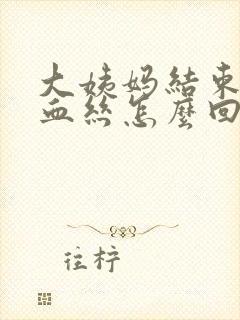 大姨妈結束
血絲怎麼回
往柠